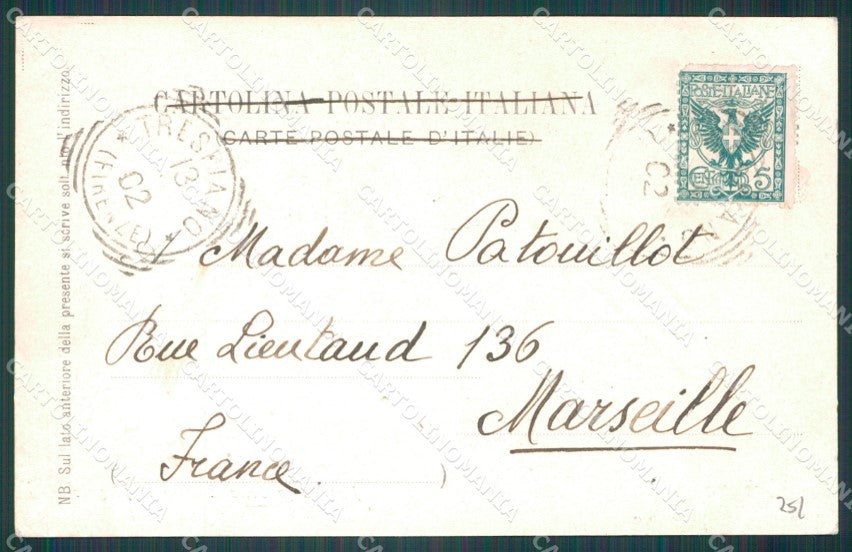 CARTOLINA POSTALE ITALIANA
(CARTE POSTALE D'ITALIE)
POSTE ITALIANE
CENT. 5
TRESPIANO
13
02
(FIRENZE)
02
Madame Patouillot
Rue Lieutaud 136
Marseille
France
NB Sul lato anteriore della presente si scrive soltanto l'indirizzo
25/
CARTOLINOMANIA